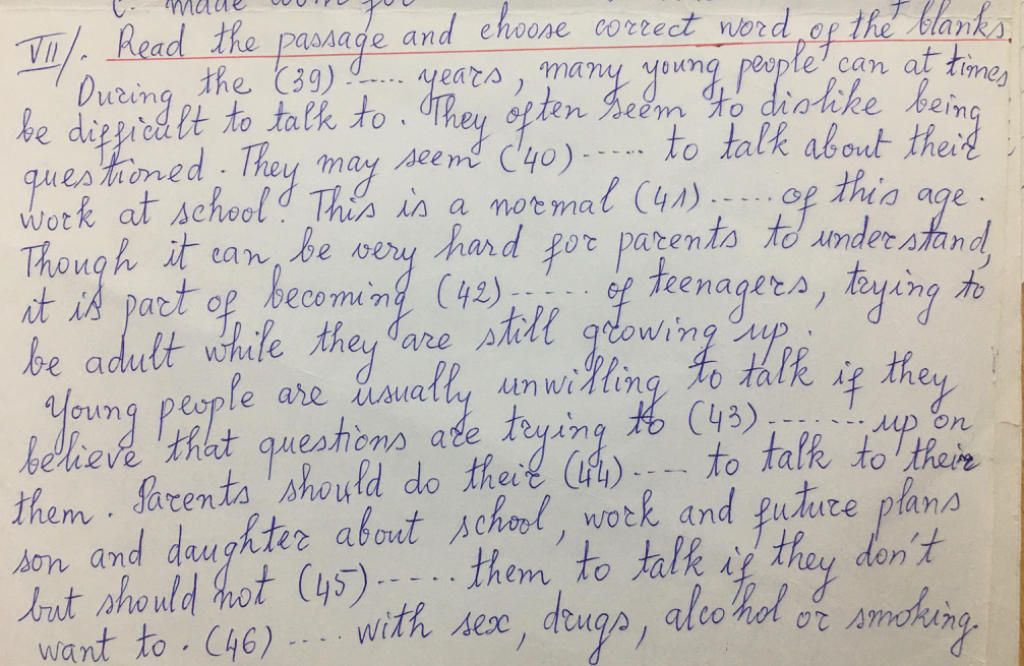 C. made worn for
VII/. Read the passage and choose correct word of the blanks.
During the (39) ...... years, many young people can at times
be difficult to talk to. They often seem to dislike being
questioned. They may seem (40) ...... to talk about their
work at school. This is a normal (41) ...... of this age.
Though it can be very hard for parents to understand,
it is part of becoming (42) ...... of teenagers, trying to
be adult while they are still growing up.
Young people are usually unwilling to talk if they
believe that questions are trying to (43) ....... up on
them. Parents should do their (44) .... to talk to their
son and daughter about school, work and future plans
but should not (45) ...... them to talk if they don't
want to. (46) .... with sex, drugs, alcohol or smoking.